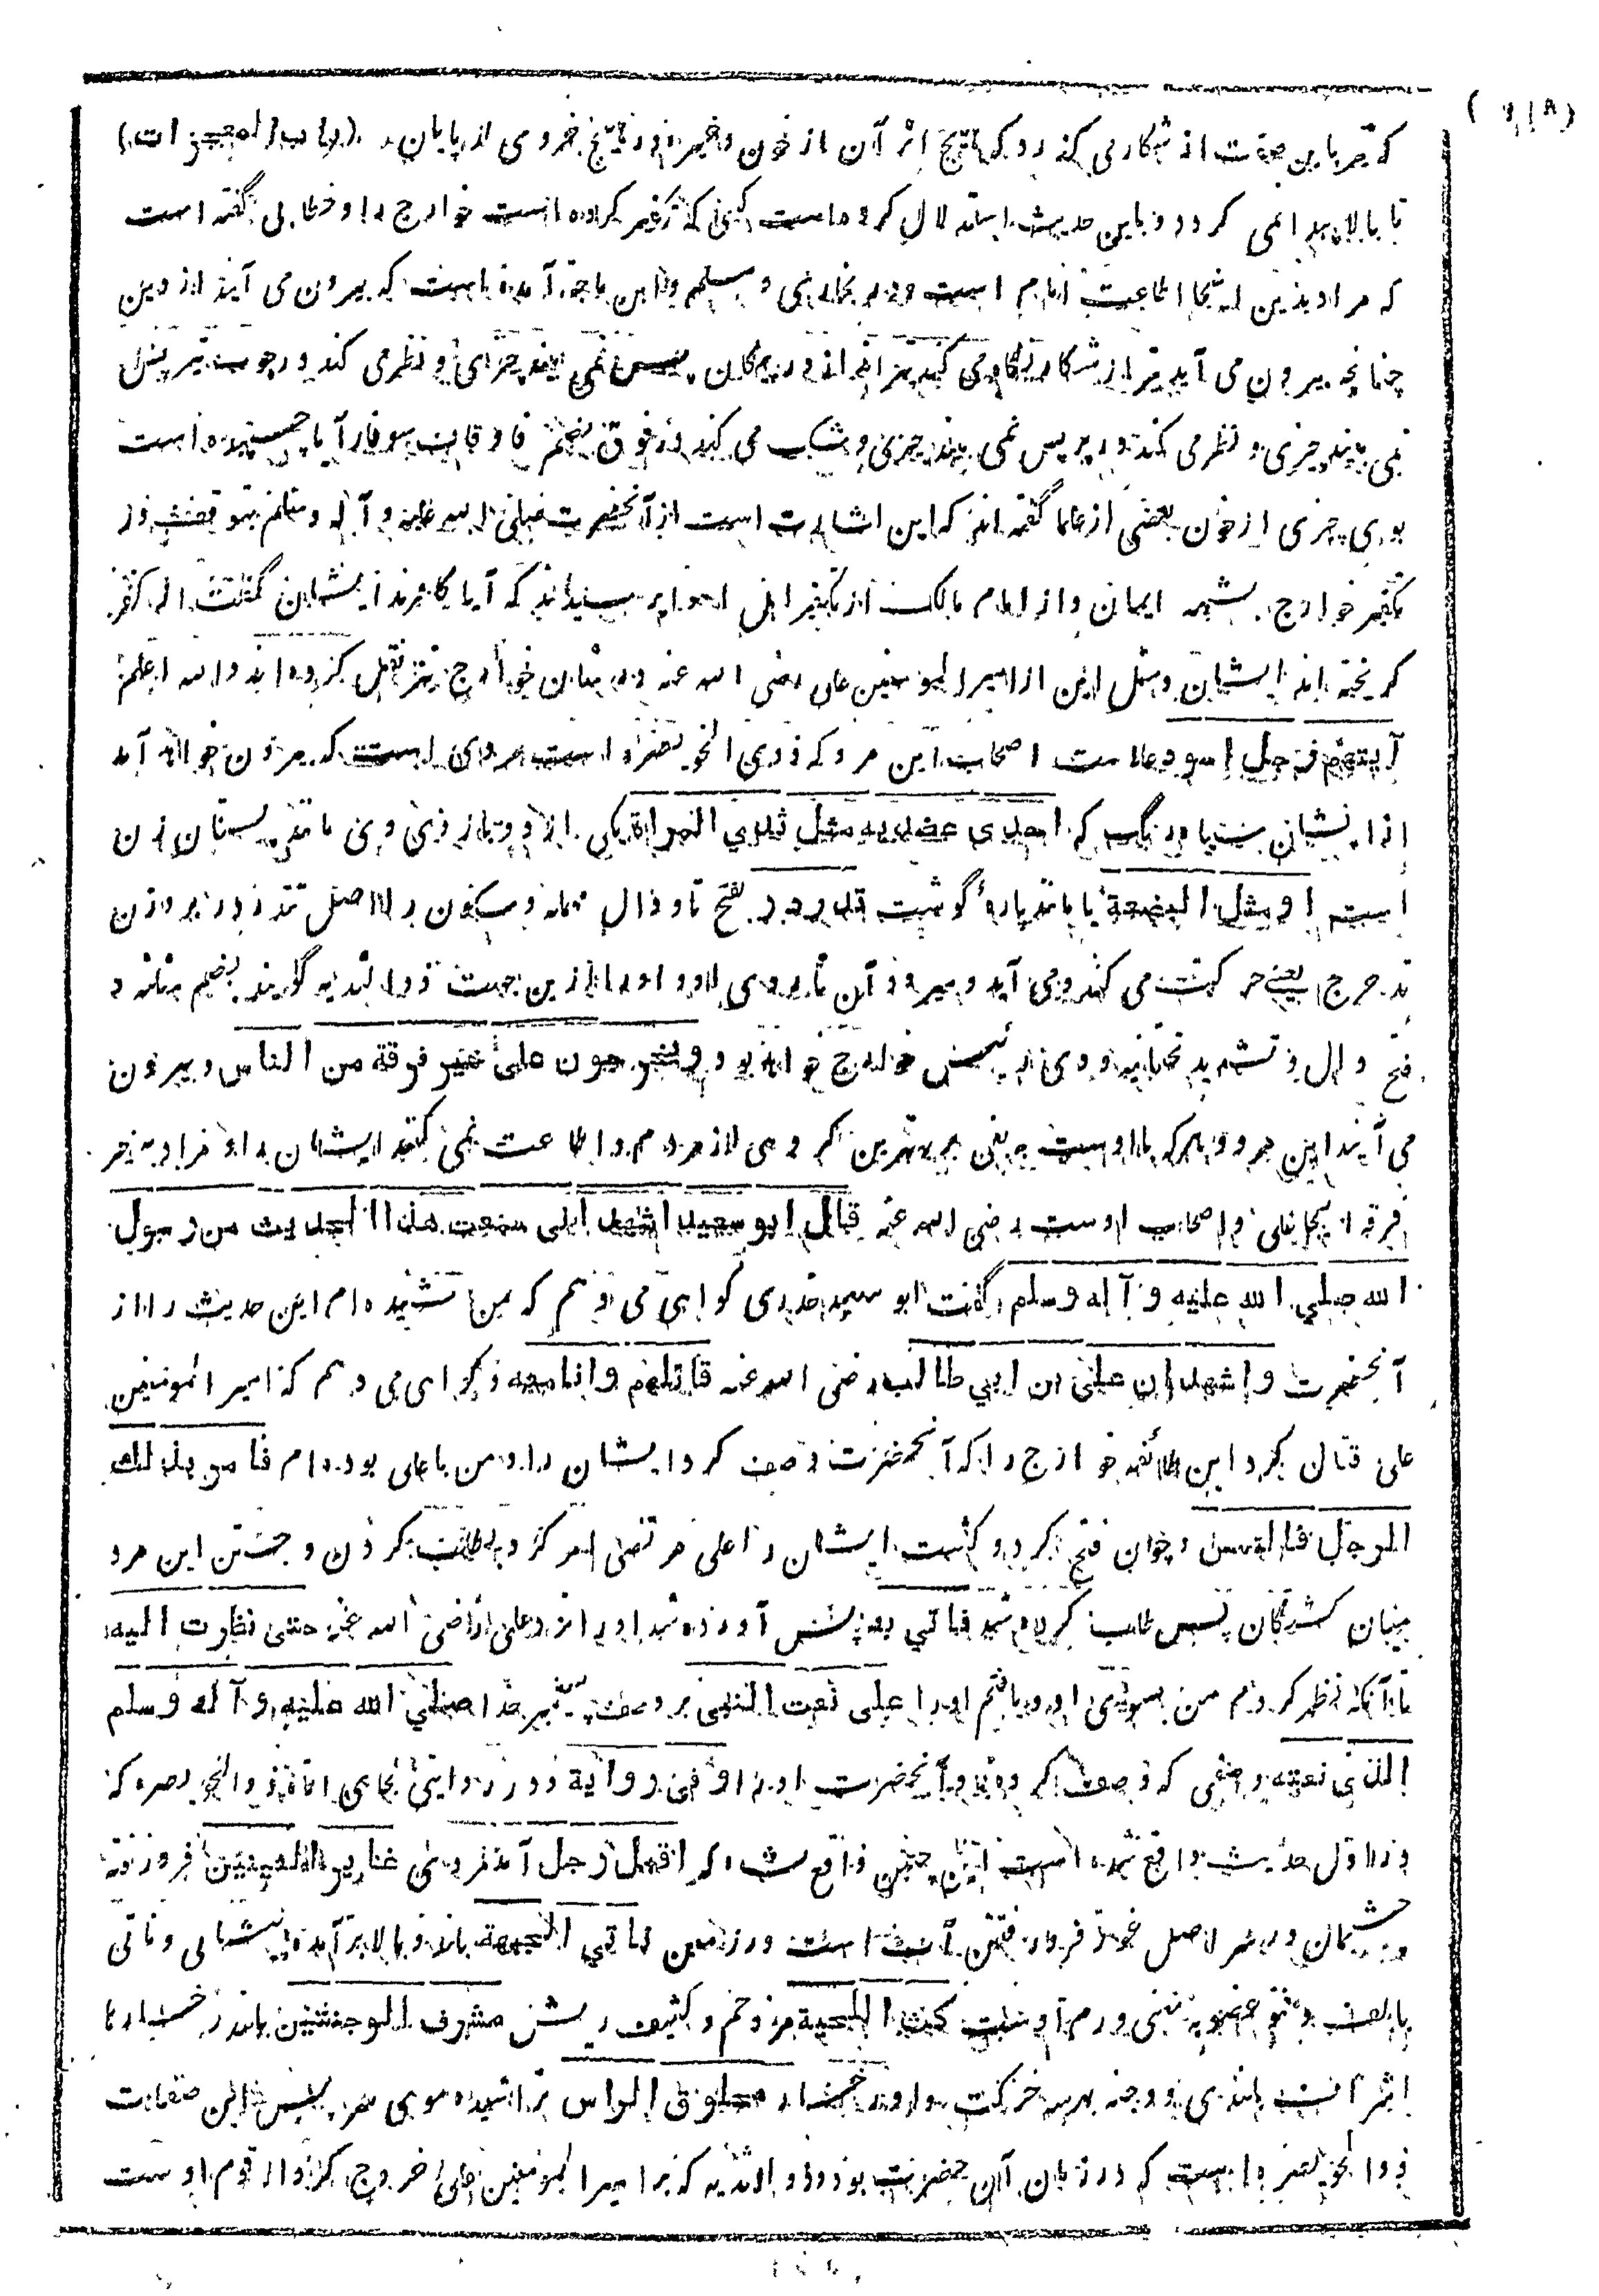 (۹۱۸)
که تیر باین صفت از شکار می گذرد که هیچ اثر آن از خون و غیره در هیچ جزوی از پایان (باب المعجزات)
تا بالا پیدا نمی گردد و باین حدیث استدلال کرده است کسی که تکفیر کرده است خوارج را و خطابی گفته است
که مراد بدین اینجا اطاعت امام است و در بخاری و مسلم و ابن ماجه آمده است که بیرون می آیند از دین
چنانچه بیرون می آید تیر از شکار نگاه می کند تیر انداز در پیکان پس نمی بیند چیزی و نظر می کند در چوب تیر پس
نمی بیند چیزی و نظر می کند در پر پس نمی بیند چیزی و شک می کند در فوق بضم فا و قاف سوفار آیا چسپیده است
بوی چیزی از خون بعضی از علما گفته اند که این اشارت است از آنحضرت صلی الله علیه و آله وسلم بتوقف در
تکفیر خوارج بشبهه ایمان و از امام مالک از تکفیر اهل اهوا پرسیدند که آیا کافرند ایشان گفت از کفر
گریخته اند ایشان و مثل این از امیر المومنین علی رضی الله عنه در شان خوارج نیز نقل کرده اند والله اعلم
آیتهم رجل اسود علامت اصحاب این مرد که ذوی الخویصره است مردی است که بیرون خواهد آمد
از ایشان سیاه رنگ که احدی عضدیه مثل ثدی المرأة یکی از دو بازوی وی مانند پستان زن
است او مثل البضعة یا مانند پارهٔ گوشت تدردر بفتح تا و دال مهمله و سکون را اصل تتدردر بر وزن
تدحرج یعنی حرکت می کند و می آید و میرود آن تا بروی او و او را ازین جهت ذو الثدیه گویند بضم مثلثه و
فتح دال و تشدید تحتانیه و وی رئیس خوارج خواهد بود و یخرجون علی خیر فرقة من الناس و بیرون
می آیند این مرد و هرکه با اوست یعنی بر بهترین گروهی از مردم و اطاعت نمی کنند ایشان را و مراد به خیر
فرقه اینجا علی و اصحاب اوست رضی الله عنه قال ابو سعید اشهد انی سمعت هذا الحدیث من رسول
الله صلی الله علیه و آله وسلم گفت ابو سعید خدری گواهی می دهم که من شنیده ام این حدیث را از
آنحضرت و اشهد ان علی بن ابی طالب رضی الله عنه قاتلهم و انا معه و گواهی می دهم که امیر المومنین
علی قتال کرد این طائفه خوارج را که آنحضرت وصف کرد ایشان را و من با علی بوده ام فامر بذلك
الرجل فالتمس و چون فتح کرد و کشت ایشان را علی مرتضی امر کرد بطلب کردن و جستن این مرد
میان کشتگان پس طلب کرده شد فاتی به پس آورده شد او را نزد علی رضی الله عنه حتی نظرت الیه
تا آنکه نظر کردم من بسوی او و یافتم او را علی نعت النبی بر وصف پیغمبر خدا صلی الله علیه و آله وسلم
الذی نعته وصفی که وصف کرده بود آنحضرت او را و فی روایة و در روایتی بجای اتاه ذو الخویصره که
در اول حدیث واقع شده است این چنین واقع شده که اقبل رجل آمد مردی غایر العینین فرو رفته
چشمان و در سر اصل غور فرو رفتن آب است در زمین ناتی الجبهة بلند و بالا برآمده پیشانی و ناتی
بالف و نتو عضو به یعنی ورم او است کث اللحیة مزدحم و کثیف ریش مشرف الوجنتین بلند رخسارها
اشراف بلندی و وجنه بهر سه حرکت واو رخسار محلوق الراس تراشیده موی سر پس این صفات
ذو الخویصره است که در زمان آن حضرت بود و ذو الثدیه که بر امیر المومنین علی خروج کرد از قوم اوست